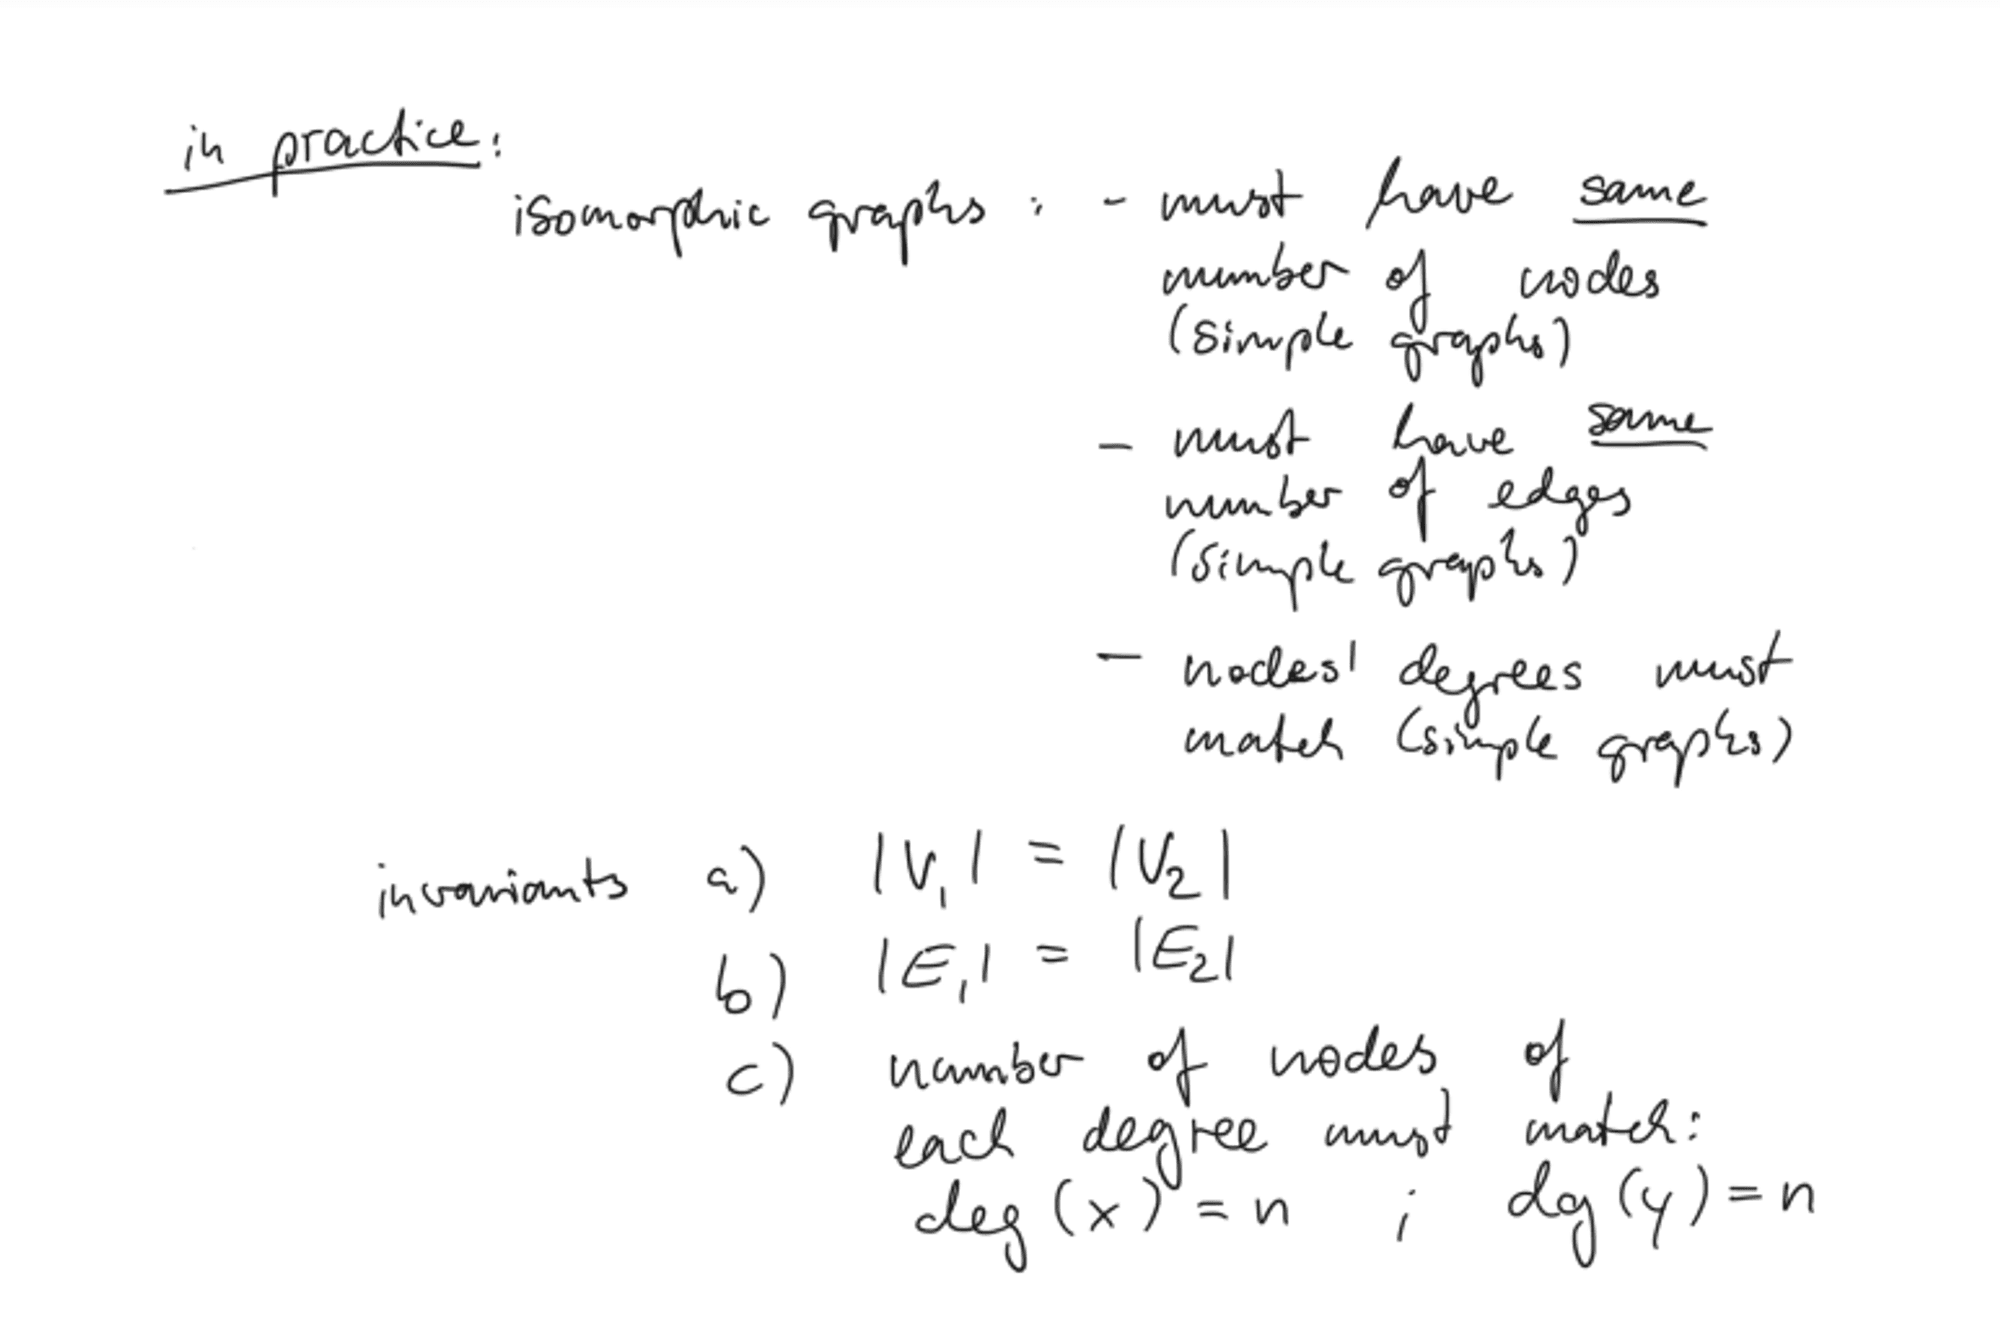 in practice:
isomorphic graphs : - must have same
number of nodes
(simple graphs)
- must have same
number of edges
(simple graphs)
- nodes' degrees must
match (simple graphs)
invariants a) |V₁| = |V₂|
b) |E₁| = |E₂|
c) number of nodes of
each degree must match:
deg (x) = n ; deg (y) = n